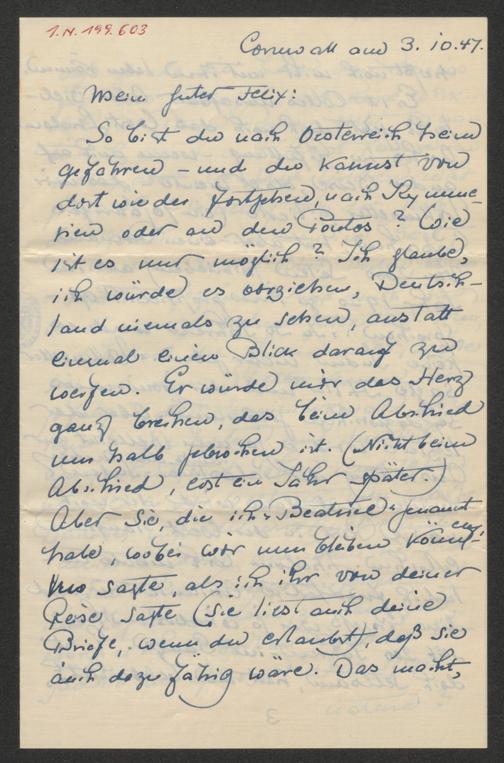 I.N. 199.603
Cornwall am 3.10.47.
Mein guter Felix:
So bist du nach Oesterreich heim
gefahren – und du kannst von
dort wieder fortgehen, nach Kymme-
rien oder an den Pontos? Wie
ist es nur möglich? Ich glaube,
ich würde es vorziehen, Deutsch-
land niemals zu sehen, anstatt
einmal einen Blick darauf zu
werfen. Er würde mir das Herz
ganz brechen, das beim Abschied
nur halb gebrochen ist. (Nicht beim
Abschied, erst ein Jahr später.)
Aber Sie, die ich "Beatrice" genannt
habe, wobei wir nun bleiben können,
sagte, als ich ihr von deiner
Reise sagte (sie liest auch deine
Briefe, wenn du erlaubst), daß sie
auch dazu fähig wäre. Das macht,